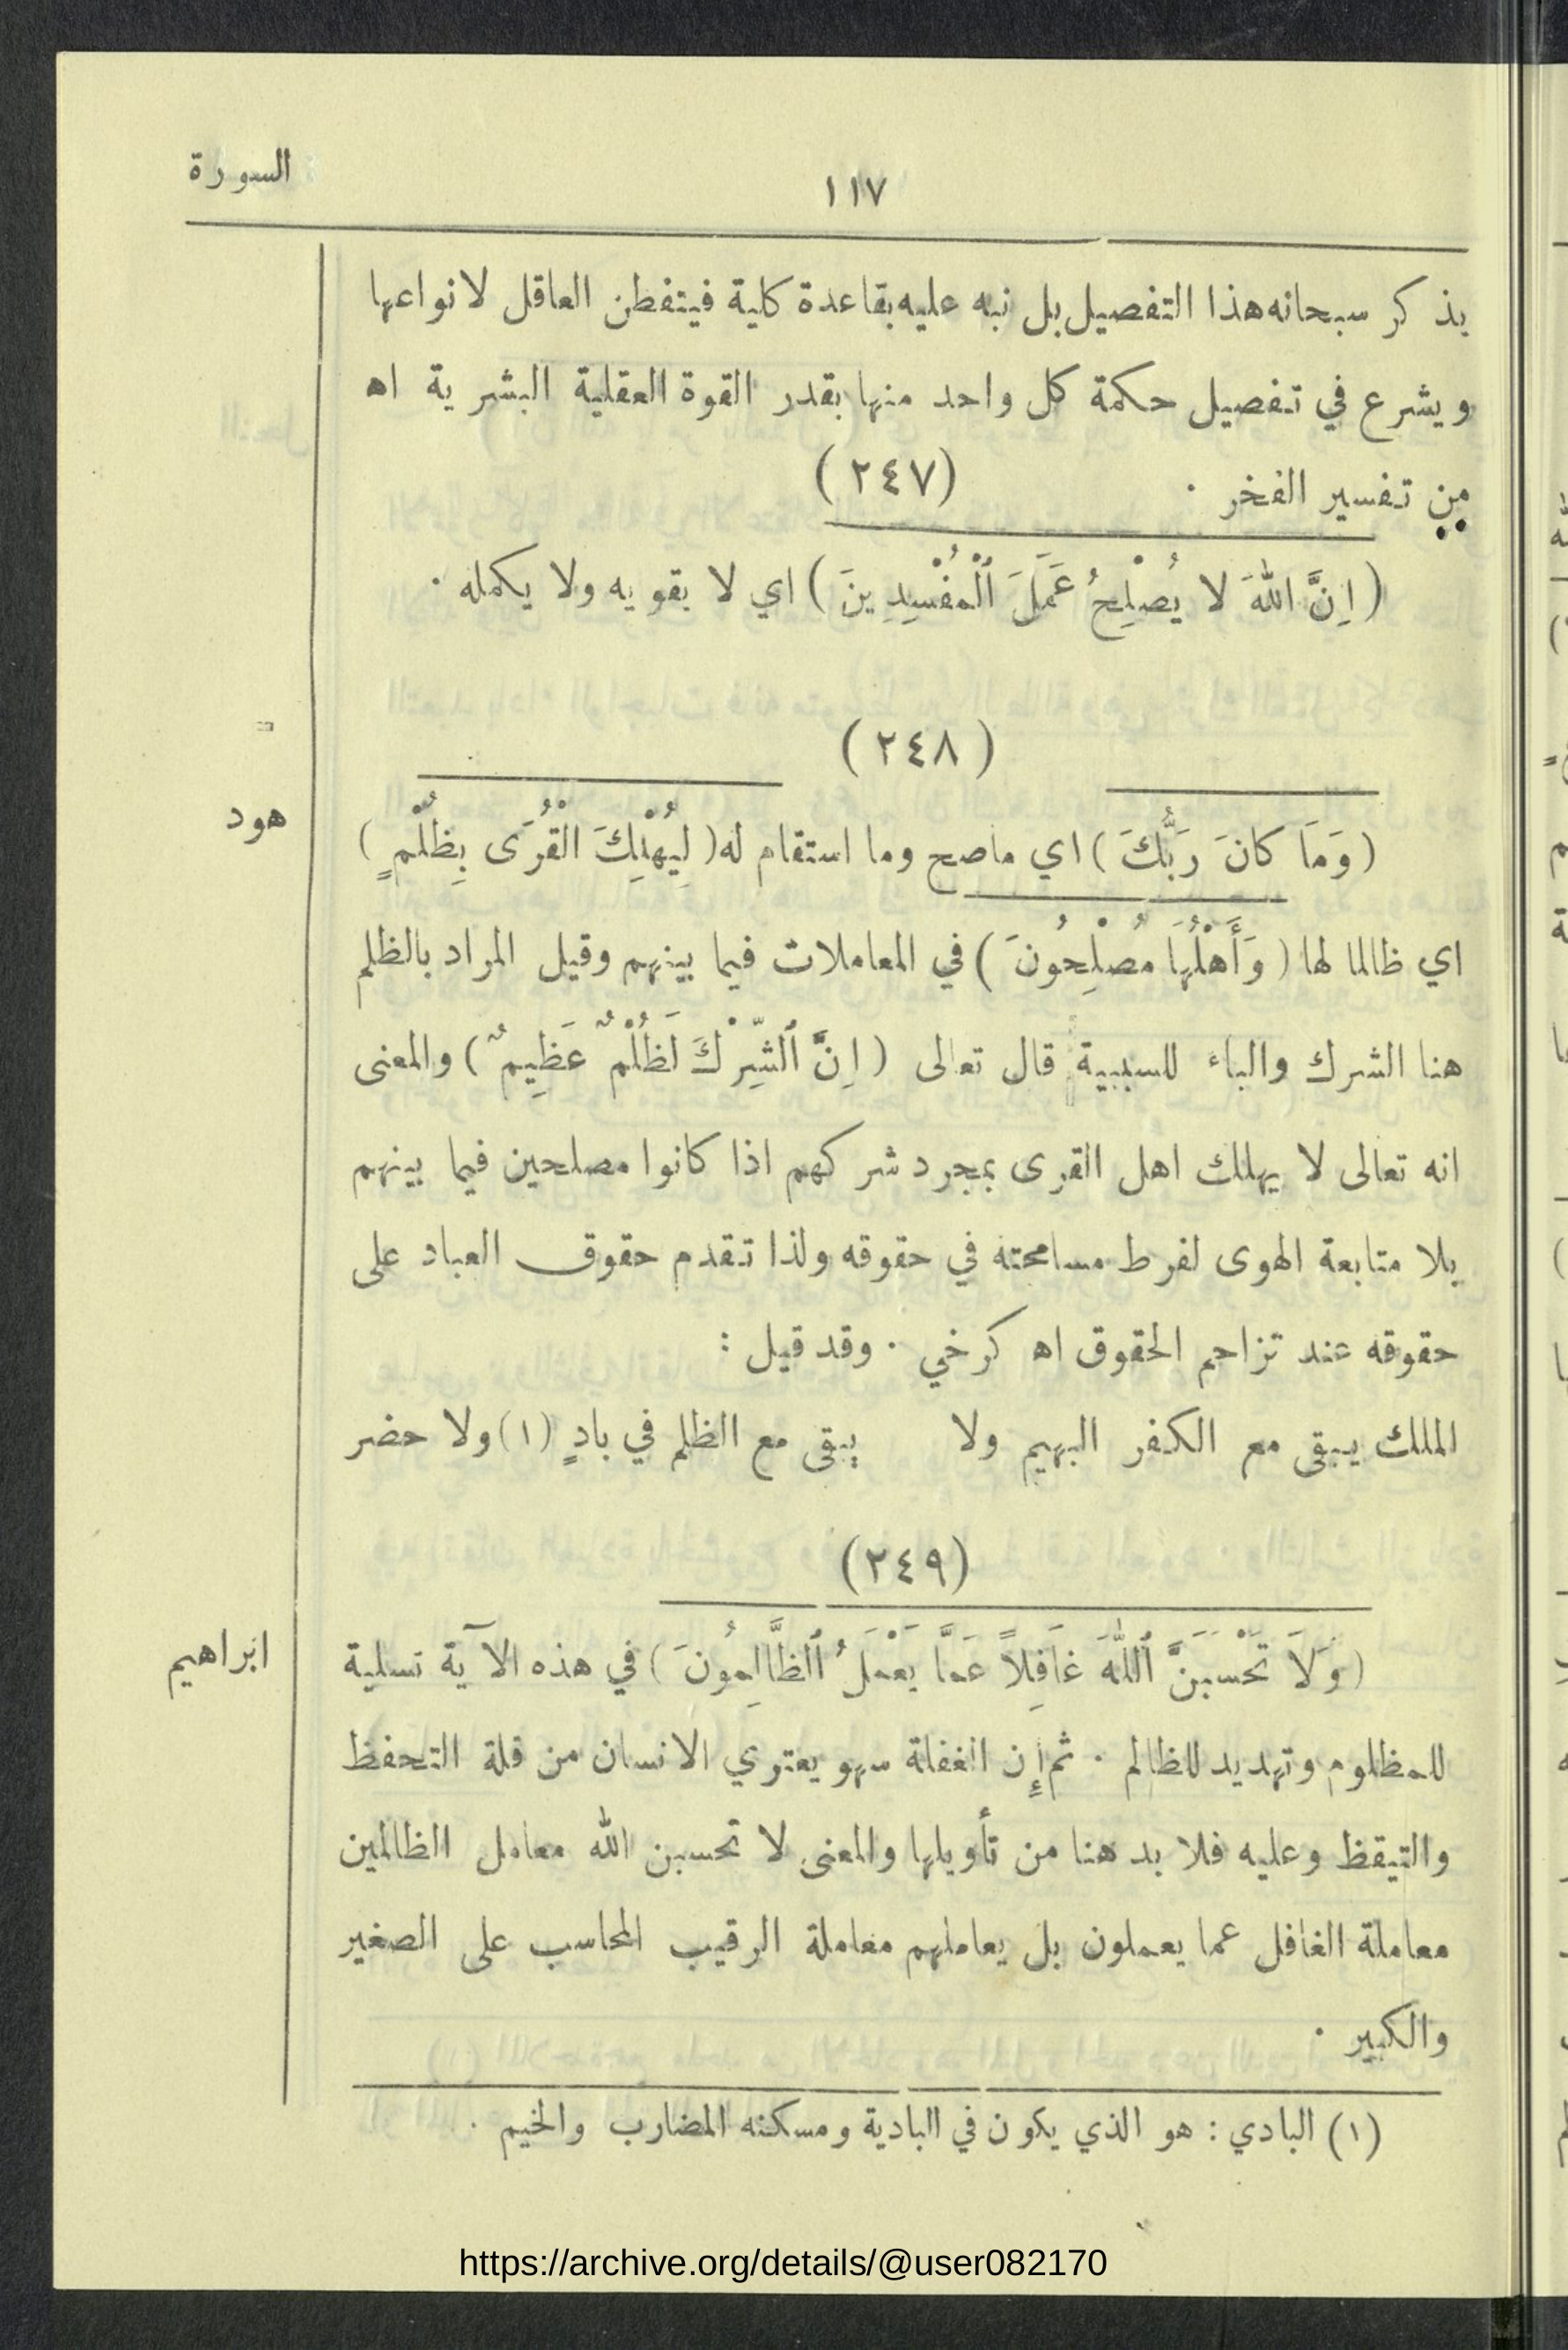 السورة
١١٧
يذكر سبحانه هذا التفصيل بل نبه عليه بقاعدة كلية فيتفطن العاقل لانواعها
ويشرع في تفصيل حكمة كل واحد منها بقدر القوة العقلية البشرية اه
من تفسير الفخر ·
(٢٤٧)
(اِنَّ اللهَ لا يُصْلِحُ عَمَلَ ٱلْمُفْسِدِينَ) اي لا يقويه ولا يكمله ·
(٢٤٨)
هود
(وَمَا كَانَ رَبُّكَ) اي ماصح وما استقام له (لِيُهْلِكَ الْقُرَى بِظُلْمٍ)
اي ظالما لها (وَأَهْلُهَا مُصْلِحُونَ) في المعاملات فيما بينهم وقيل المراد بالظلم
هنا الشرك والباء للسببية قال تعالى (اِنَّ ٱلشِّرْكَ لَظُلْمٌ عَظِيمٌ) والمعنى
انه تعالى لا يهلك اهل القرى بمجرد شركهم اذا كانوا مصلحين فيما بينهم
بلا متابعة الهوى لفرط مسامحته في حقوقه ولذا تقدم حقوق العباد على
حقوقه عند تزاحم الحقوق اه كرخي · وقد قيل :
الملك يبقى مع الكفر البهيم ولا يبقى مع الظلم في بادٍ (١) ولا حضر
(٢٤٩)
ابراهيم
(وَلَا تَحْسَبَنَّ ٱللهَ غَافِلاً عَمَّا يَعْمَلُ ٱلظَّالِمُونَ) في هذه الآية تسلية
للمظلوم وتهديد للظالم · ثم إِن الغفلة سهو يعتري الانسان من قلة التحفظ
والتيقظ وعليه فلا بد هنا من تأويلها والمعنى لا تحسبن الله معامل الظالمين
معاملة الغافل عما يعملون بل يعاملهم معاملة الرقيب المحاسب على الصغير
والكبير ·
(١) البادي : هو الذي يكون في البادية ومسكنه المضارب والخيم ·
https://archive.org/details/@user082170